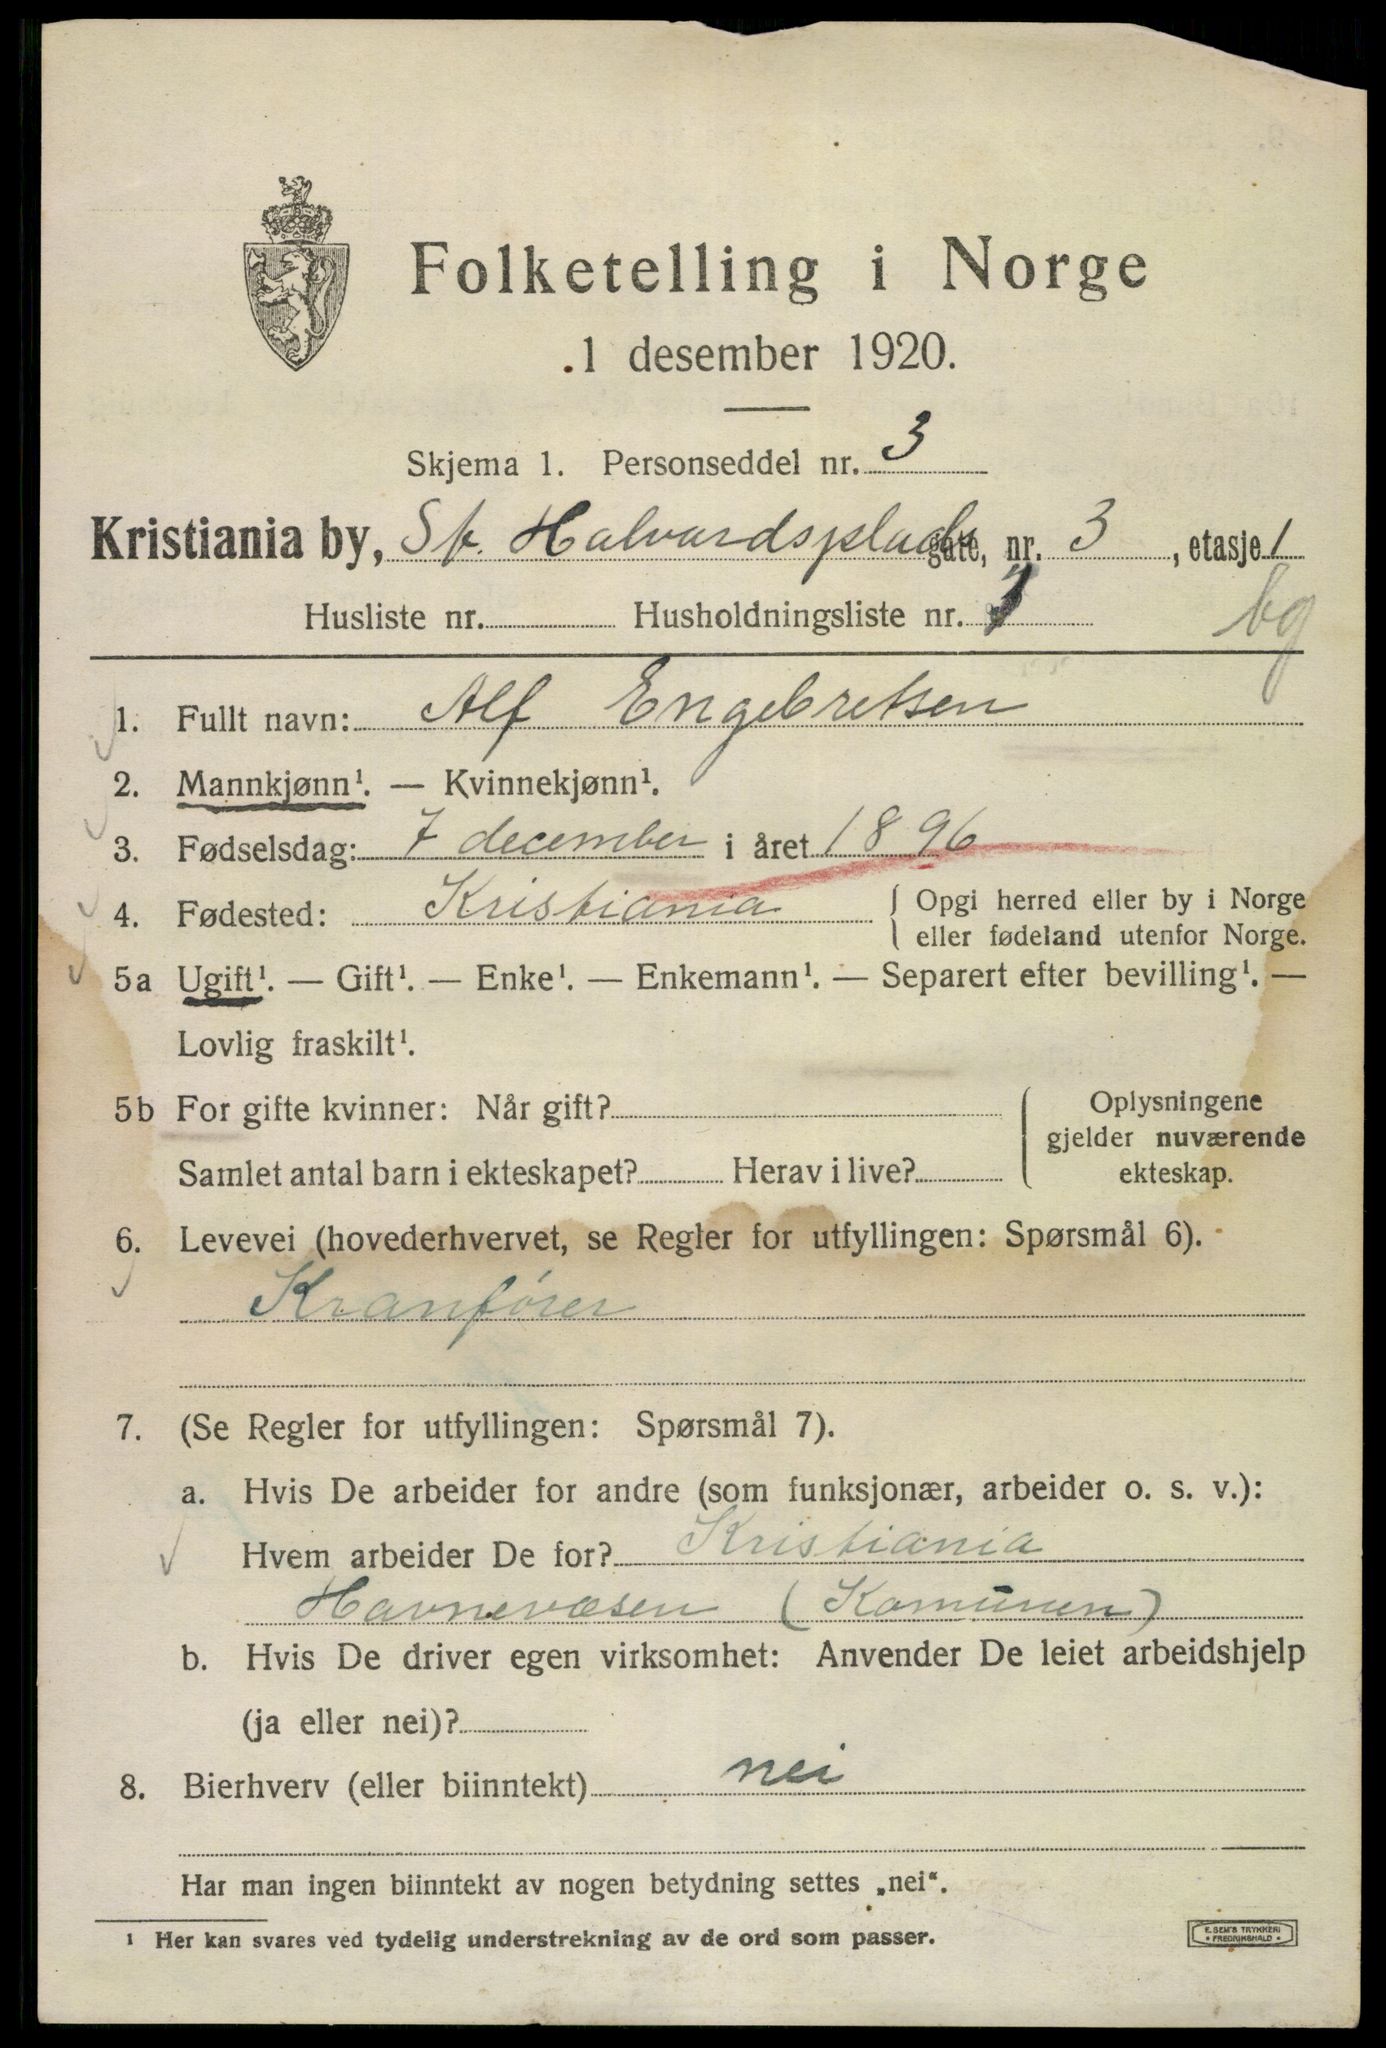 Folketelling i Norge
1 desember 1920.
Skjema 1. Personseddel nr. 3
Kristiania by, St. Halvardsplads gate, nr. 3, etasje 1
Husliste nr. Husholdningsliste nr. 1
bg
1. Fullt navn: Alf Engebretsen
2. Mannkjønn¹. — Kvinnekjønn¹.
3. Fødselsdag: 7 december i året 1896
4. Fødested: Kristiania { Opgi herred eller by i Norge
eller fødeland utenfor Norge.
5a Ugift¹. — Gift¹. — Enke¹. — Enkemann¹. — Separert efter bevilling¹. —
Lovlig fraskilt¹.
5b For gifte kvinner: Når gift?
Samlet antal barn i ekteskapet? Herav i live?
Oplysningene
gjelder nuværende
ekteskap.
6. Levevei (hovederhvervet, se Regler for utfyllingen: Spørsmål 6).
Kranfører
7. (Se Regler for utfyllingen: Spørsmål 7).
a. Hvis De arbeider for andre (som funksjonær, arbeider o. s. v.):
Hvem arbeider De for? Kristiania
Havnevæsen (Komunen)
b. Hvis De driver egen virksomhet: Anvender De leiet arbeidshjelp
(ja eller nei)?
8. Bierhverv (eller biinntekt) nei
Har man ingen biinntekt av nogen betydning settes „nei“.
¹ Her kan svares ved tydelig understrekning av de ord som passer.
E. SEM'S TRYKKERI
• FREDRIKSHALD •